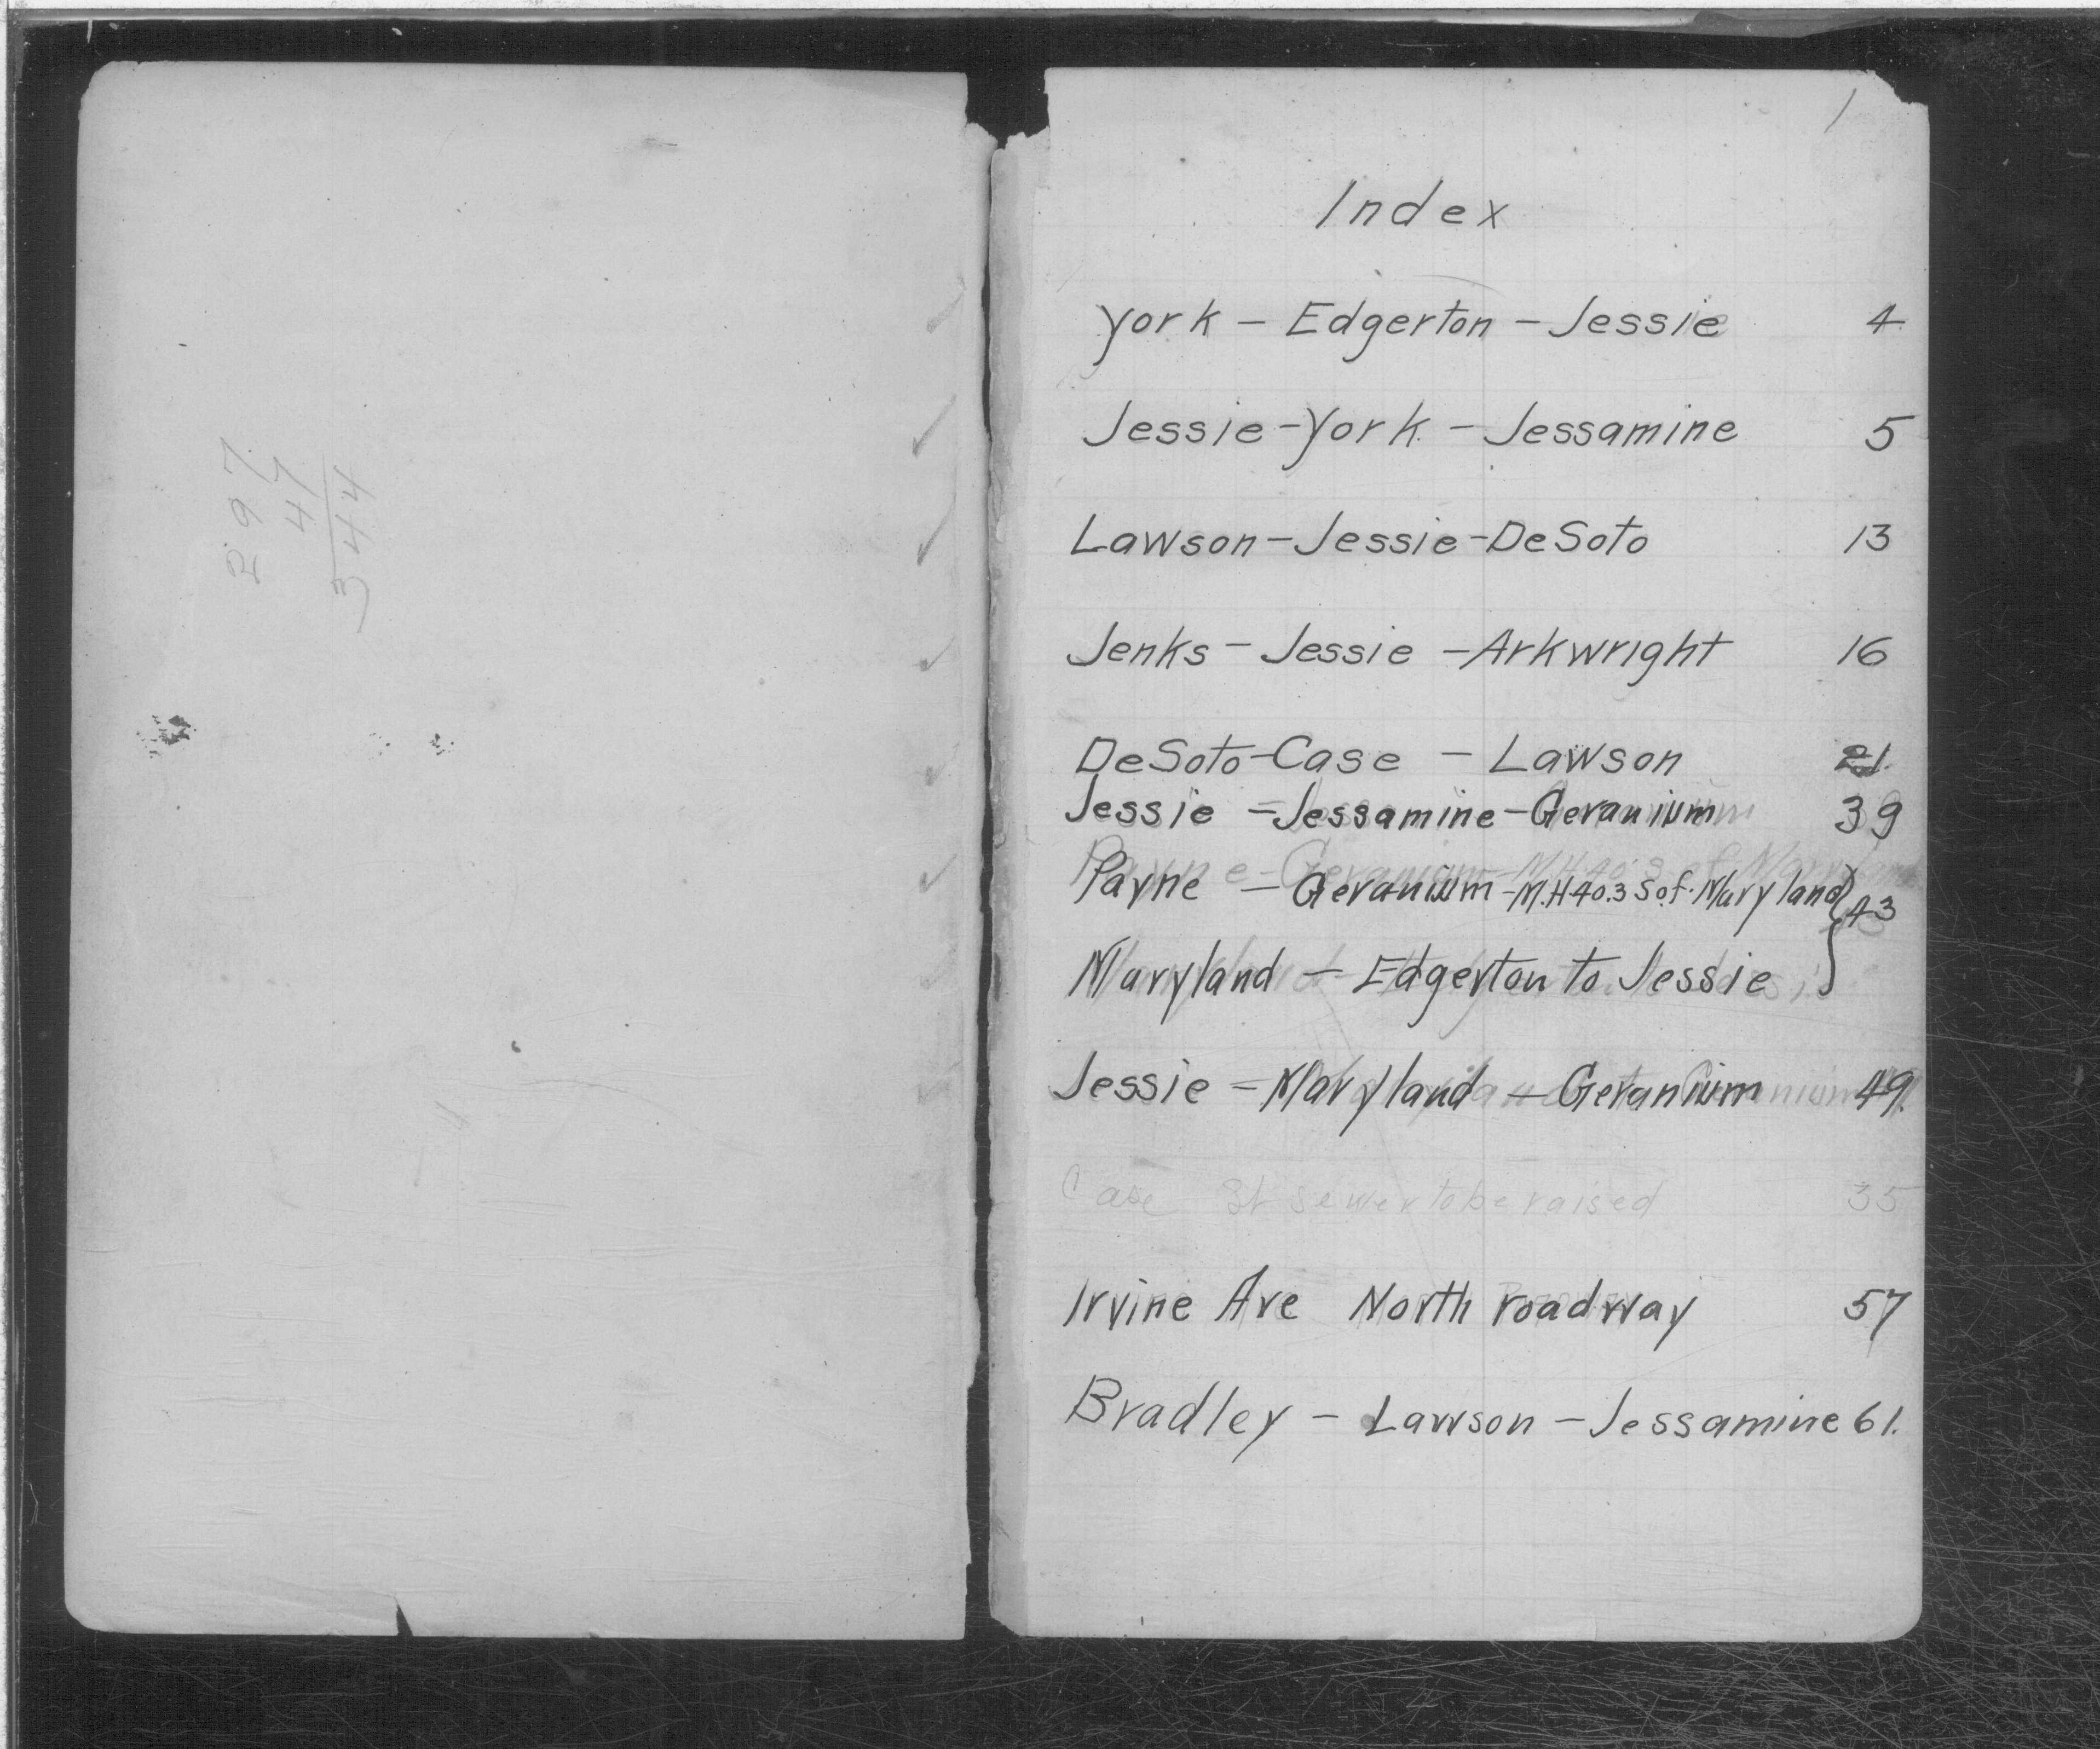 297
47
344
1
Index
York - Edgerton - Jessie 4
Jessie - York - Jessamine 5
Lawson - Jessie - DeSoto 13
Jenks - Jessie - Arkwright 16
DeSoto - Case - Lawson 21
Jessie - Jessamine - Geranium 39
Payne - Geranium - M.H. 40.3 S. of Maryland } 43
Maryland - Edgerton to Jessie
Jessie - Maryland - Geranium 49.
Case St sewer to be raised 35
Irvine Ave North roadway 57
Bradley - Lawson - Jessamine 61.